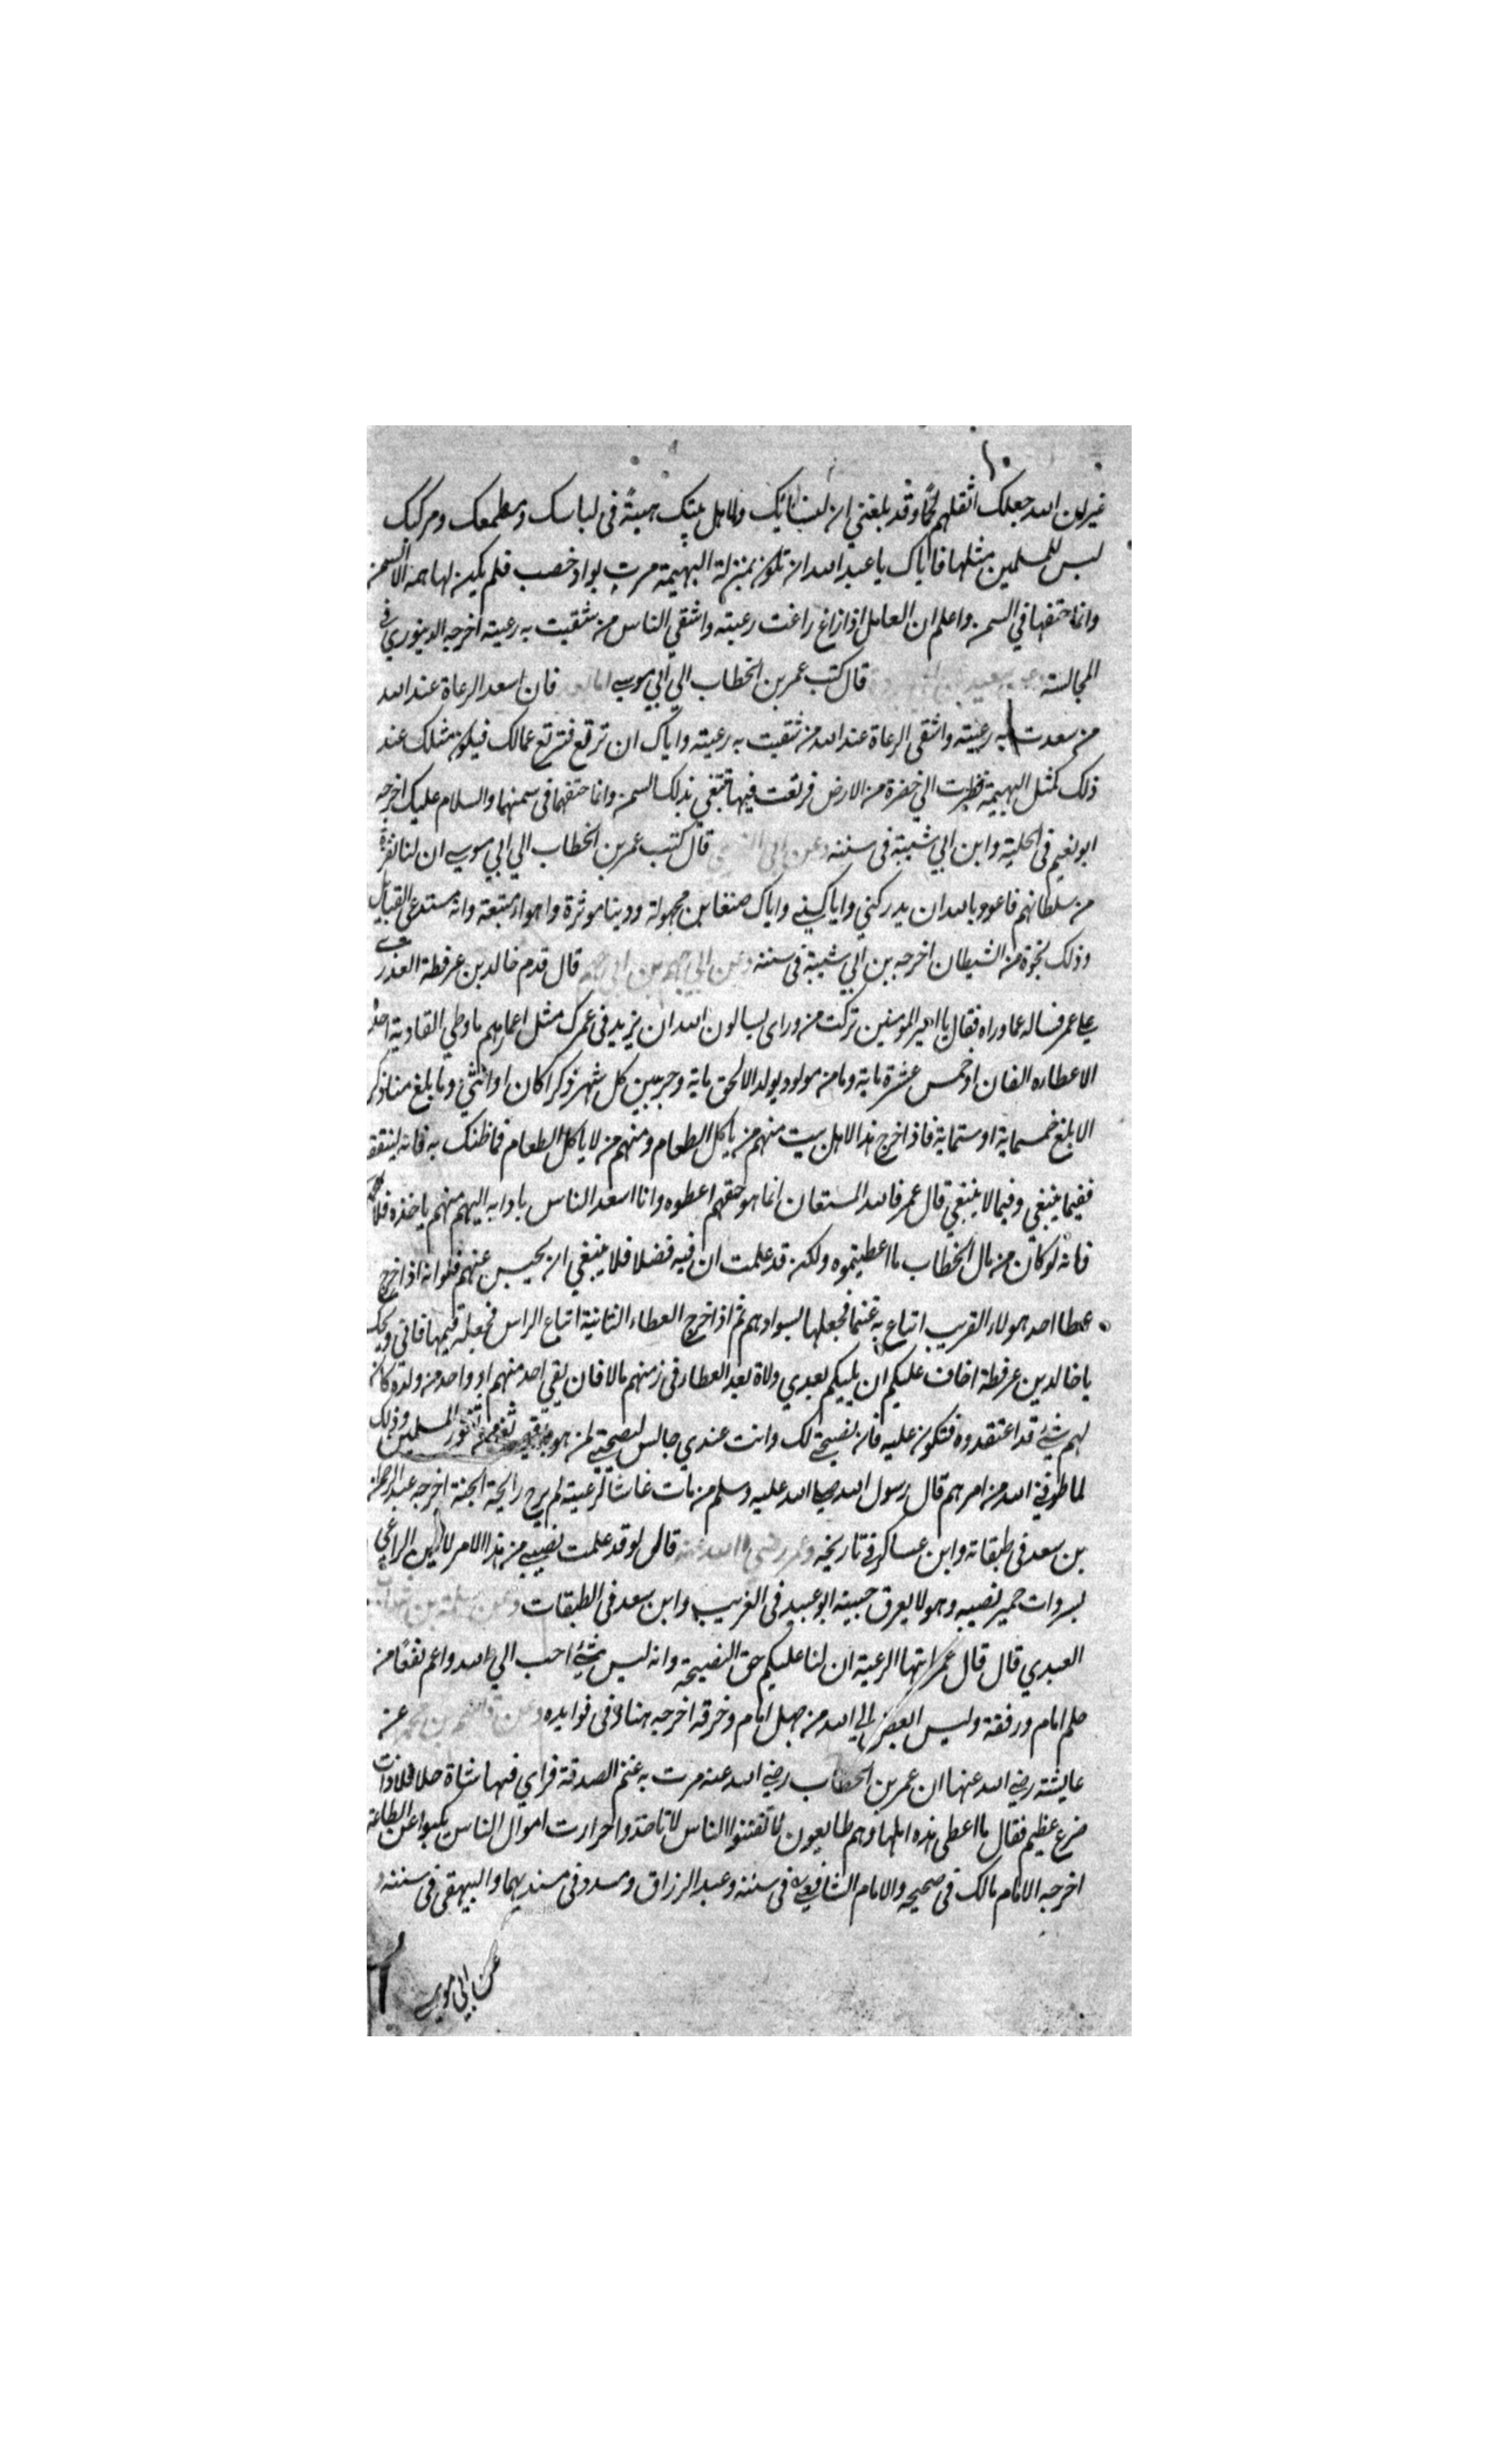 غير ان الله جعلك اثقلهم حملا وقد بلغني ان لك ولاهل بيتك هيئة في لباسك ومطعمك ومركبك
ليس للمسلمين مثلها فاياك يا عبد الله ان تكون بمنزلة البهيمة مرت بواد خصب فلم يكن لها هم الا السمن
وانما حتفها في السمن واعلم ان العامل اذا زاغ زاغت رعيته واشقي الناس من شقيت به رعيته اخرجه الدينوري في
المجالسة وعن سعيد بن ابي بردة قال كتب عمر بن الخطاب الي ابي موسي اما بعد فان اسعد الرعاة عند الله
من سعدت به رعيته واشقى الرعاة عند الله من شقيت به رعيته واياك ان ترتع فترتع عمالك فيكون مثلك عند
ذلك كمثل البهيمة نظرت الي خضرة من الارض فرتعت فيها تبتغي بذلك السمن وانما حتفها في سمنها والسلام عليك اخرجه
ابو نعيم في الحلية وابن ابي شيبة في سننه وعن قال كتب عمر بن الخطاب الي ابي موسي ان للناس نفرة
من سلطانهم فاعوذ بالله ان يدركني واياك واياك ضغاين محمولة ودنيا موثرة واهواء متبعة وانه ستدعى القبايل
وذلك نخوة من الشيطان اخرجه بن ابي شيبة في سننه وعن قال قدم خالد بن عرفطة العذري
علي عمر فساله عما وراه فقال يا امير المومنين تركت من وراي يسالون الله ان يزيد في عمرك مثل اعمارهم ما وطي القادسية احد
الا عطاوه الفان او خمس عشرة ماية وما من مولود يولد الا الحق ماية وجريبين كل شهر ذكرا كان او انثي وما بلغ منا ذكر
الا بلغ خمسماية او ستماية فاذا خرج هذا لاهل بيت منهم من ياكل الطعام ومنهم من لا ياكل الطعام فما ظنك به فانه لينفقه
فيما ينبغي وفيما لا ينبغي قال عمر فالله المستعان انما هو حقهم اعطوه وانا اسعد الناس بادايه اليهم منهم باخذه فلا
فانه لو كان من مال الخطاب ما اعطيتموه ولكن قد علمت ان فيه فضلا فلا ينبغي ان يحبس عنهم فلو انه اذا خرج
عطا احد هولاء القريب ابتاع به غنما فجعلها بسوادهم ثم اذا خرج العطاء الثانية ابتاع الراس فجعله فيها فاني ويحك
يا خالد بن عرفطة اخاف عليكم ان يليكم بعدي ولاة يعد العطا في زمنهم مالا فان بقي احد منهم او واحد من ولده كان
لهم شئ قد اعتقدوه فتكون عليه فان نصيحتي لك وانت عندي جالس لنصيحتي لمن هو ثغر من ثغور المسلمين وذلك
لما طوقني الله من امرهم قال رسول الله صلى الله عليه وسلم من مات غاشا لرعيته لم يرح رايحة الجنة اخرجه
بن سعد في طبقاته وابن عساكر في تاريخه وعن عمر رضي الله عنه قال لو قد علمت نصيبي من هذا الامر الراعي
بسروات حمير نصيبه وهو لا يعرق جبينه ابو عبيد في الغريب وابن سعد في الطبقات وعن سلمة بن شهاب
العبدي قال قال عمر ايتها الرعية ان لنا عليكم حق النصيحة وانه ليس شئ احب الي الله واعم نفعا من
حلم امام ورفقه وليس ابغض الي الله من جهل امام وخرقه اخرجه هناد في فوايده وعن قاسم بن محمد عن
عايشة رضي الله عنها ان عمر بن الخطاب رضي الله عنه مرت به غنم الصدقة فراي فيها شاة حافلا ذات
ضرع عظيم فقال ما اعطى هذه اهلها وهم طايعون لا تفتنوا الناس لا تاخذوا حرزات اموال الناس نكبوا عن الطعام
اخرجه الامام مالك في صحيحه والامام الشافعي في سننه وعبد الرزاق ومسدد في مسنديهما والبيهقي في سننه و
عن ابي موسي